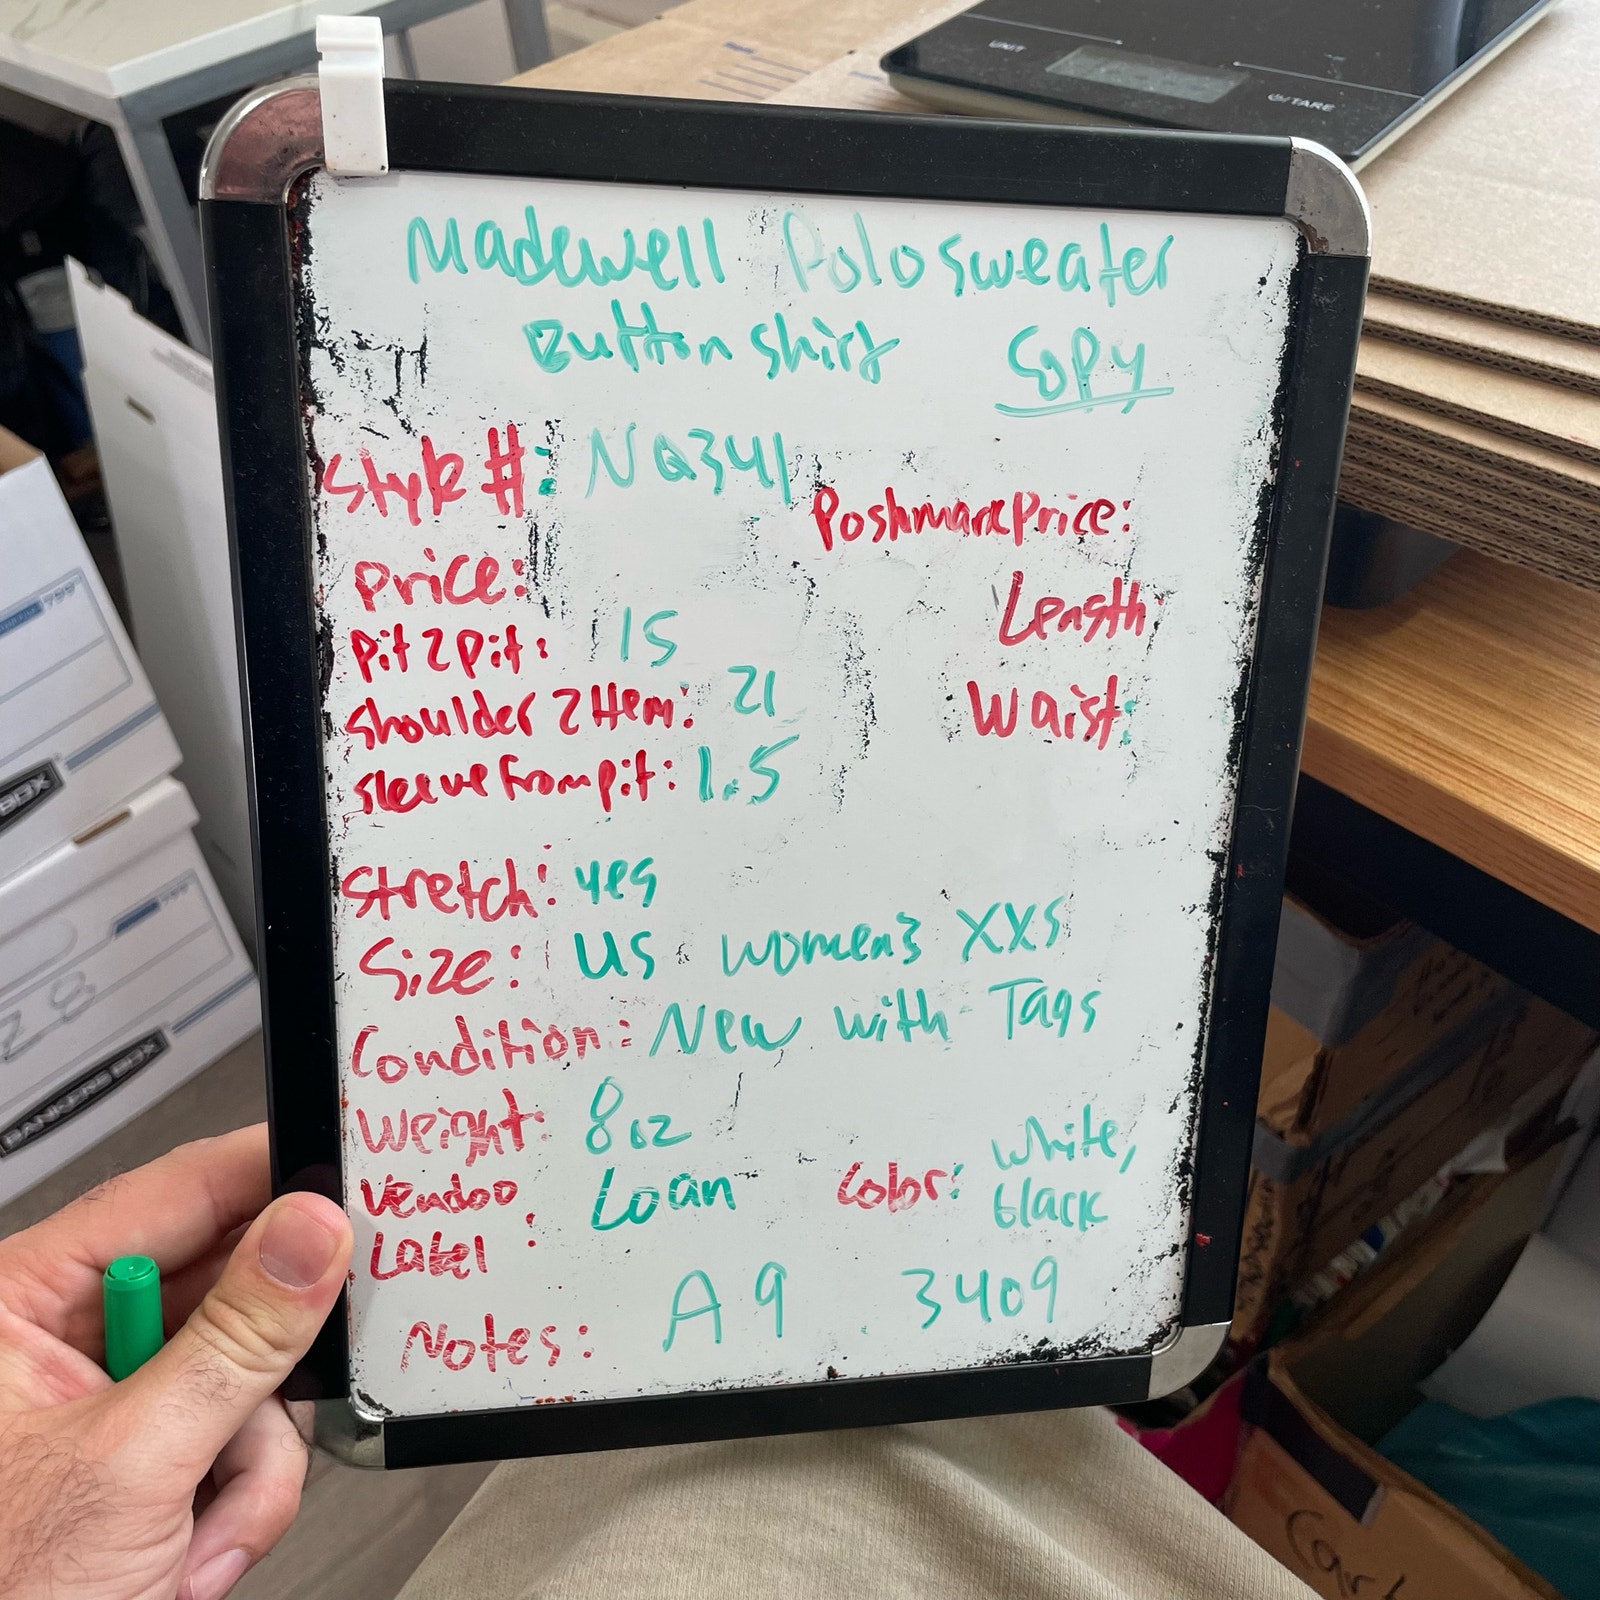 UNIT
TARE
Madewell Polo sweater
Button shirt Copy
Style #: NQ341
Poshmark Price:
Price:
Length:
Pit 2 pit: 15
Shoulder 2 Hem: 21
Waist:
Sleeve from pit: 1.5
Stretch: yes
Size: US women's XXS
Condition: New with Tags
Weight: 8oz
Vendoo Label: Loan
Color: white, black
Notes: A9 3409
BOX
28
BANKERS BOX